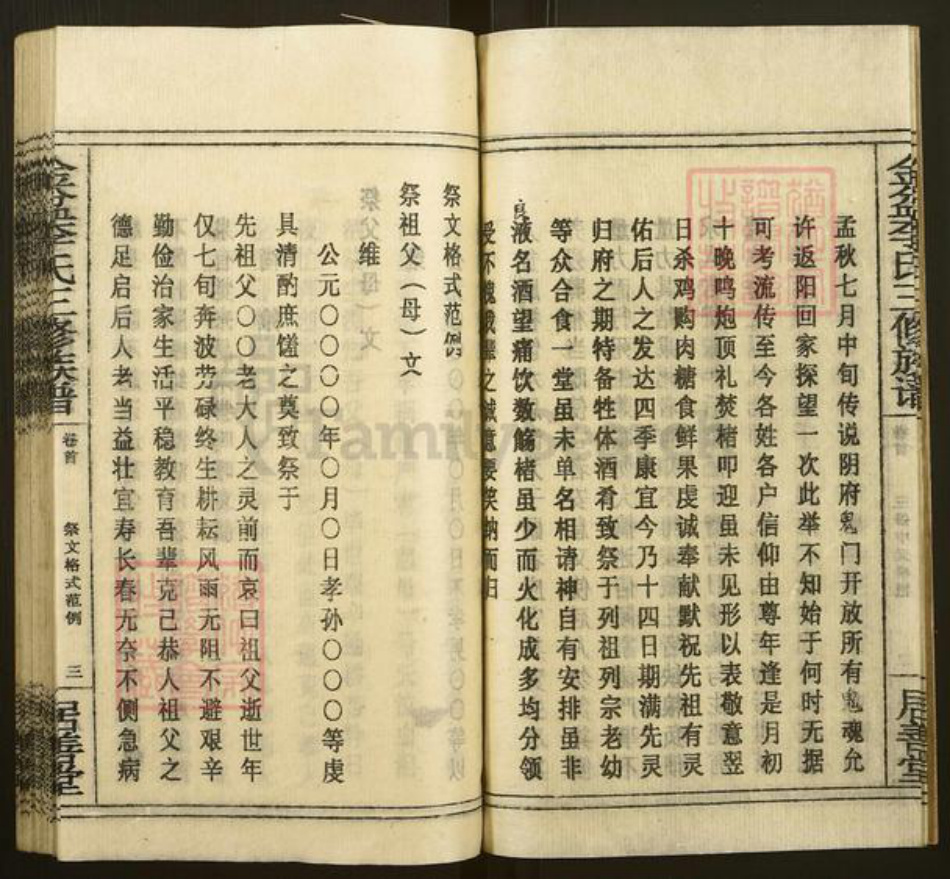 孟秋七月中旬传说阴府鬼门开放所有鬼魂允
许返阳回家探望一次此举不知始于何时无据
可考流传至今各姓各户信仰由尊年逢是月初
十晚鸣炮顶礼焚楮叩迎虽未见形以表敬意翌
日杀鸡购肉糖食鲜果虔诚奉献默祝先祖有灵
佑后人之发达四季康宜今乃十四日期满先灵
归府之期特备牲体酒肴致祭于列祖列宗老幼
等众合食一堂虽未单名相请神自有安排虽非
液名酒望痛饮数觞楮虽少而火化成多均分领
受不愧我辈之诚意要笑纳而归
祭文格式范例
祭祖父（母）文
维
公元〇〇〇〇年〇月〇日孝孙〇〇〇等虔
具清酌庶馐之奠致祭于
先祖父〇〇老大人之灵前而哀曰祖父逝世年
仅七旬奔波劳碌终生耕耘风雨无阻不避艰辛
勤俭治家生活平稳教育吾辈克己恭人祖父之
德足启后人老当益壮宜寿长春无奈不侧急病
李氏三修族谱
卷首
祭文格式范例
三
居善堂